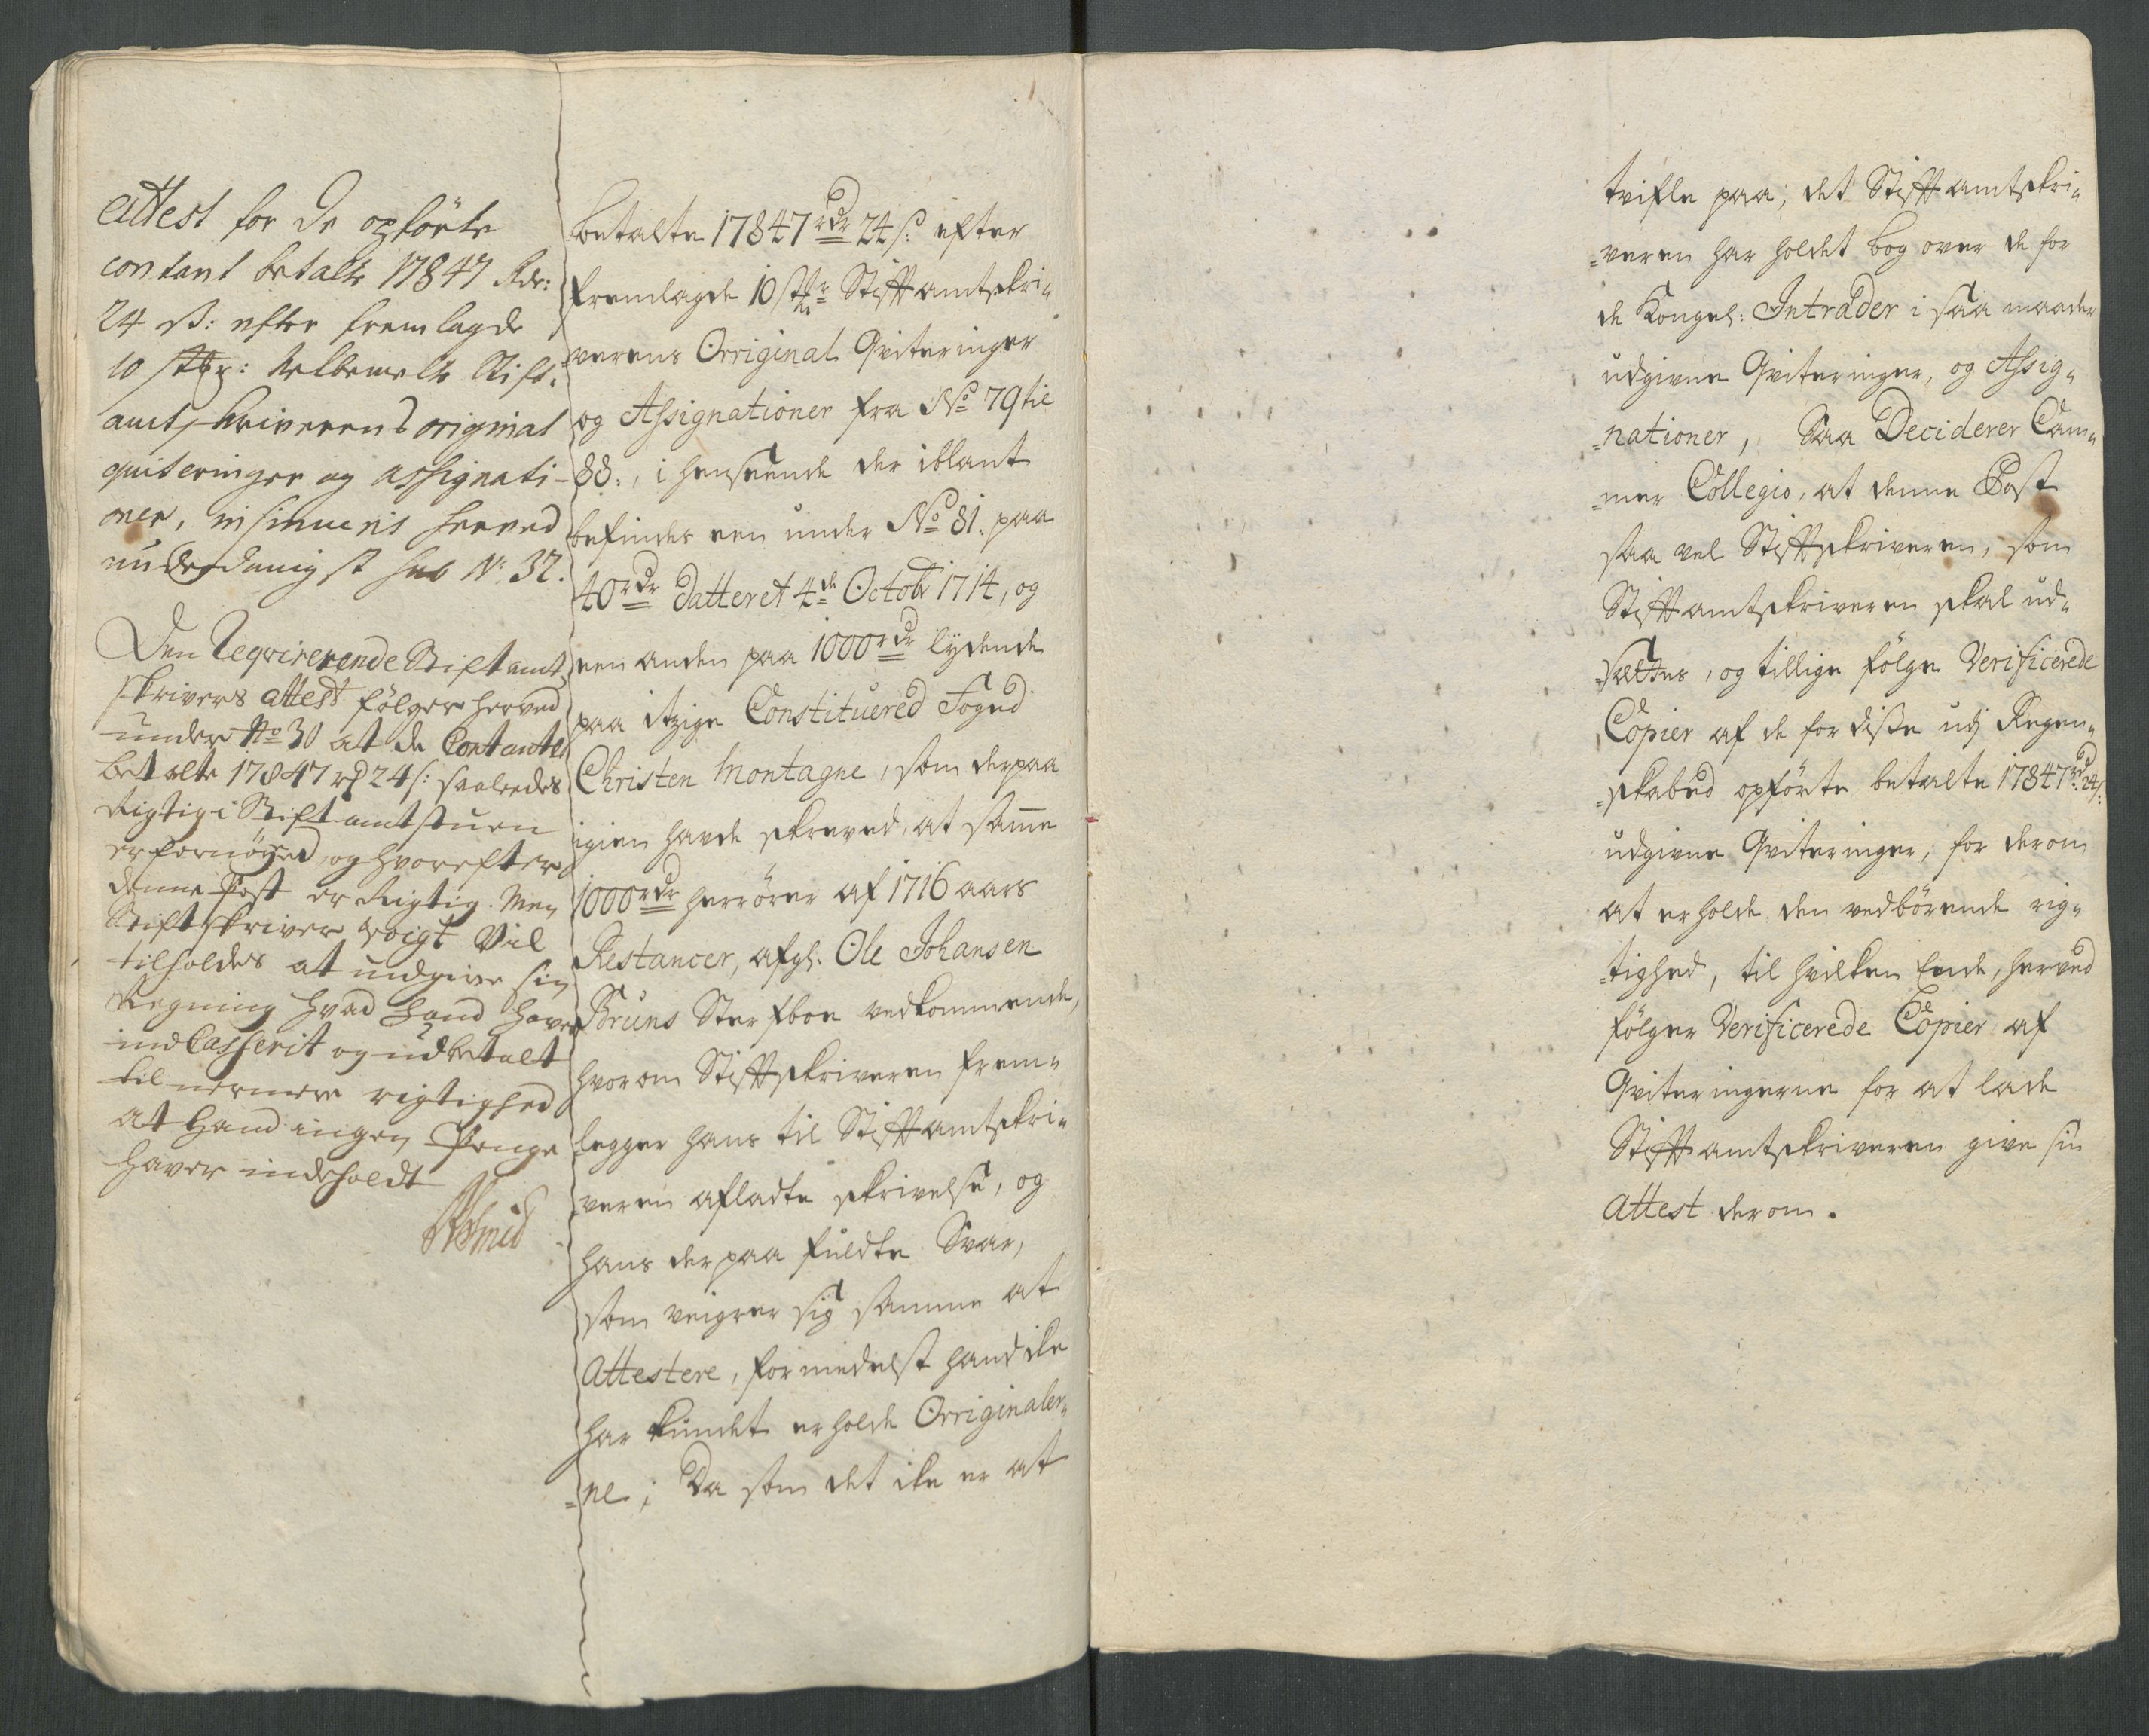 Attest for de opförte
contant betalte 17847 Rdr:
24 ß: efter fremlagde
10 stkr: velbemelte Stift-
amtskriverens original
quiteringer og assignati-
oner, insinueris herved
underdanigst sub No. 37.
Den Reqvirerende Stiftamt
skrivers attest følger herved
under No 30 at de Contante
betalte 17847 rd 24 s: saaledes
Rigtig i Stiftamtstuen
er fornöyed, og hvorefter
denne Post er Rigtig. Men
Stiftskriver Voigt Vil
tilholdes at indgive sin
Regning hvad Hand haver
indCasserit og udbetalt
til nermere rigtighed
at Hand ingen Penge
haver indeholdt
betalte 17847 rdr 24 s: efter
fremlagde 10 stkr Stiftamtskri-
verens Original Qviteringer
og Assignationer fra No 79 til
88:, i henseende der iblant
befindes een under No 81. paa
40 rdr Datteret 4de Octobr 1714, og
een anden paa 1000 rdr lydende
paa itzige Constituered Foged
Christen Montagne, som derpaa
igien havde skreved, at samme
1000 rdr herrører af 1716 aars
Restancer, afgl: Ole Johansen
Bruns Sterfboe vedkommende,
hvorom Stiftskriveren frem-
legger hans til Stiftamtskri-
veren afladte skrivelse, og
hans derpaa fuldte Svar,
som veigrer sig samme at
Attestere, formedelst hand ike
har kundet erholde Originaler-
=ne; Da som det ike er at
tvifle paa, det Stiftamtskri-
=veren har holdet bog over de for
de Kongel: Intrader i saa maader
udgivne Qviteringer, og Assig-
=nationer, Saa Deciderer Cam-
=mer Collegio, at denne Post
saa vel Stiftskriveren, som
Stiftamtskriveren skal ud-
settes, og tillige følge Verificerede
Copier af de for diße udj Regen-
=skabed opførte betalte 17847 rd 24 s:
udgivne Qviteringer, for derom
at erholde den vedbörende rig-
=tighed, til hvilken Ende, herved
følger Verificerede Copier af
Qviteringerne for at lade
Stiftamtskriveren give sin
Attest derom.